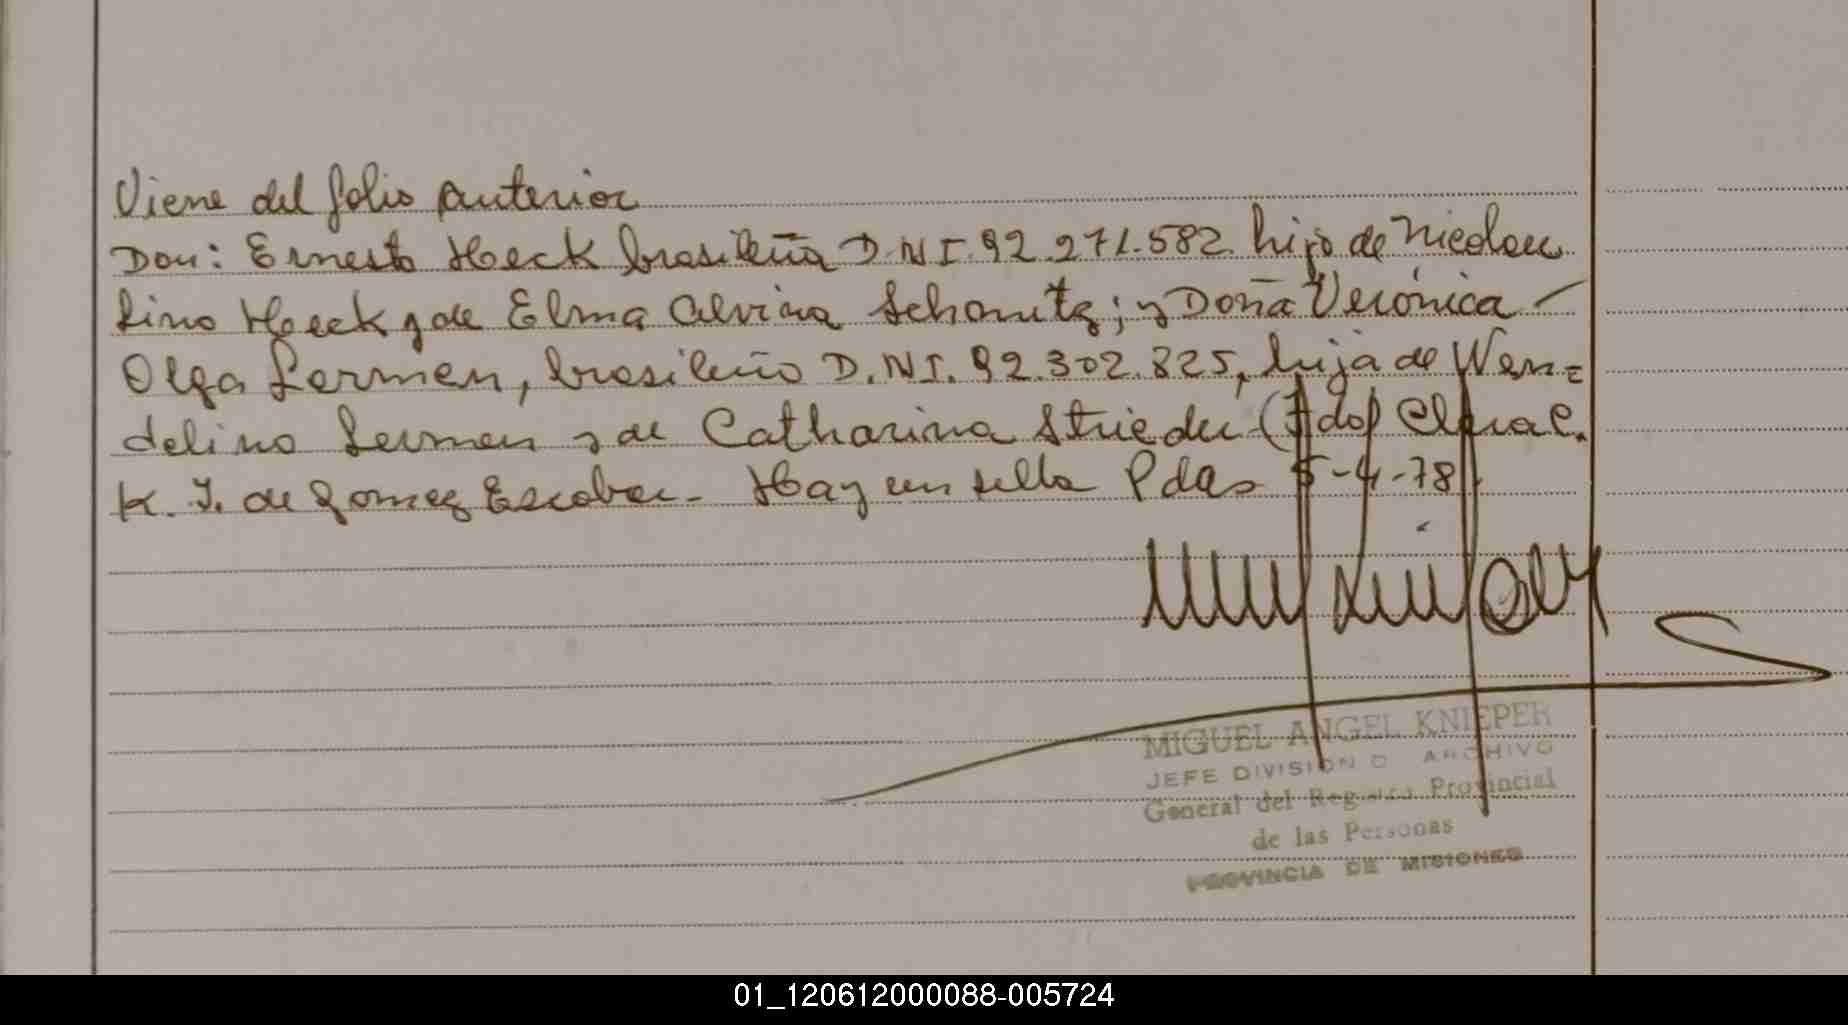 Viene del folio anterior
Don: Ernesto Heck brasileña D.N.I. 92.271.582 hijo de Nicolau
Lino Heck y de Elma Alvina Schonitz; y Doña Verónica
Olga Lermen, brasileño D.N.I. 92.302.825, hija de Wen=
delino Lermen y de Catharina Strieder (Fdo) Elena C.
K. I. de Gomez Escobar - Hay un sello Pdas 5-4-78
MIGUEL ANGEL KNIEPER
JEFE DIVISION D ARCHIVO
General del Registro Provincial
de las Personas
PROVINCIA DE MISIONES
01_120612000088-005724